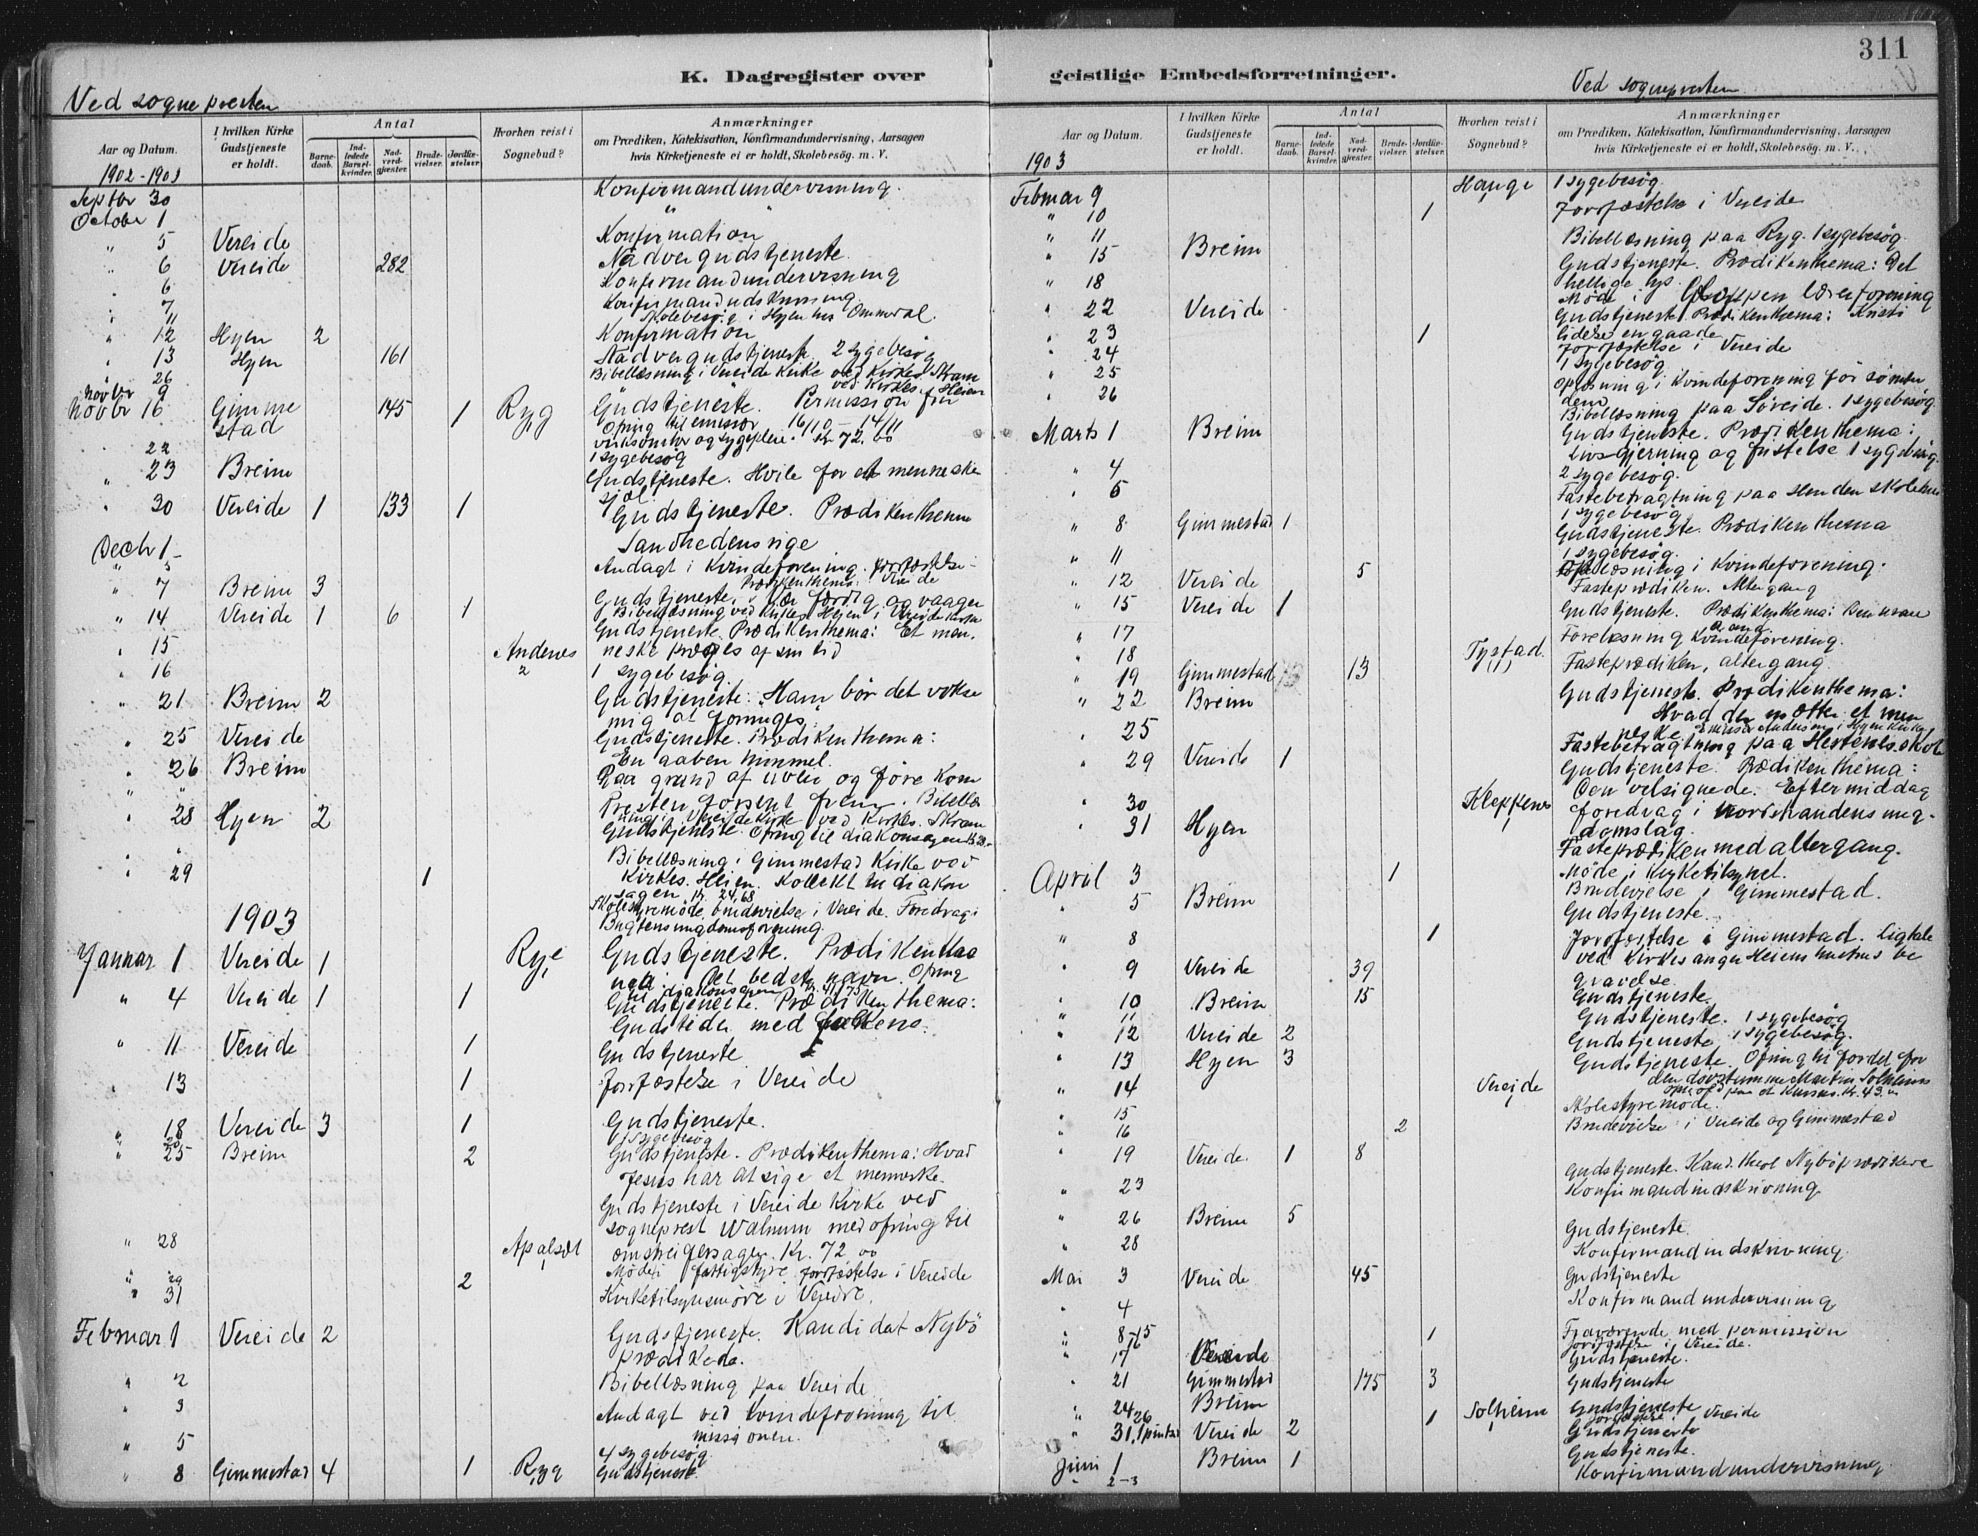 311
K. Dagregister over
Ved sogneprесten
Aar og Datum.
I hvilken Kirke Gudstjeneste er holdt.
Antal
Barne-daab.
Ind-ledede Barsel-kvinder.
Nad-verd-gjæster.
Brude-vielser.
Jordfæ-stelser.
Hvorhen reist i Sognebud?
Anmærkninger
om Prædiken, Katekisation, Konfirmandundervisning, Aarsagen
hvis Kirketjeneste ei er holdt, Skolebesøg. m. V.
1902-1903
Septbr 30 Konfirmandundervisning.
October 1 " "
" 5 Vereide Konfirmation
" 6 Vereide 282 Nadvergudstjeneste.
" 6 Konfirmandundervisning
" 7
" 11 Skolebesøg i Hyen
" 12 Hyen 2 Konfirmation
" 13 Hyen 161 Nadvergudstjeneste 2 sygebesøg
26 Bibellæsning i Vereide Kirke ved Kirkes. Skram
Novbr 9 " " ved Kirkes. Heien
Novbr 16 Gimmestad 145 1 Ryg Gudstjeneste. Permission fra
16/10 - 14/11
22 1 sygebesøg
" 23 Breim Gudstjeneste. Hvile for et menneske
sjæl
" 30 Vereide 1 133 1 Gudstjeneste. Prædikenthema
Sandhedens rige
Decbr 1
" 5 Andagt i Kvindeforening. Jordfæstelse i Vereide
" 7 Breim 3 Gudstjeneste. Vær færdig og vaagen
Bibellæsning ved Kirkes. Heien i Vereide Kirke
" 14 Vereide 1 6 1 Gudstjeneste. Prædikenthema: Et men-
" 15 Andenes neske præges af sin tid
" 16 2 1 sygebesøg.
" 21 Breim 2 Gudstjeneste: "Ham bør det vokse
mig at forringes"
" 25 Vereide Gudstjeneste. Prædikenthema:
En aaben himmel.
" 26 Breim Paa grund af uveir og føre kom
" " Presten forsent frem. Bibellæ
ning i Vereide Kirke ved Kirkes. Skram
" 28 Hyen 2 Gudstjeneste. Ofring til diakonsagen
" " Bibellæsning i Gimmestad Kirke ved
" 29 1 Kirkes. Heien. Kollekt til diakon
sagen kr. 24,68
Skolestyremøde. brudevielse i Vereide. Foredrag i
Bugtens ungdomsforening.
1903
Januar 1 Vereide 1 Rye Gudstjeneste. Prædikenthema
Det bedste navn. Ofring
til diakonsagen kr. 41,75
" 4 Vereide 1 1 Gudstjeneste. Prædikenthema:
Guds tider med folkene.
" 11 Vereide 1 Gudstjeneste
" 13 1 Jordfæstelse i Vereide
" 18 Vereide 3 1 Gudstjeneste.
" 20 1 sygebesøg
" 25 Breim 2 Gudstjeneste. Prædikenthema: Hvad
Jesus har at sige et menneske.
Gudstjeneste i Vereide Kirke ved
sogneprest Walnum med ofring til
" 28 Apalsæt omstreifersagen. Kr. 72 00
" 29 Møde i fattigstyre. Jordfæstelse i Vereide
" 31 2 Kirketilsynsmøde i Vereide.
Februar 1 Vereide 2 Gudstjeneste. Kandidat Nybø
prædikede.
" 2 Bibellæsning paa Vereide
" 3 Andagt ved kvindeforening til
missionen.
" 5 4 sygebesøg
" 8 Gimmestad 4 1 Ryg Gudstjeneste
geistlige Embedsforretninger.
Ved sogneprесten
Aar og Datum.
I hvilken Kirke Gudstjeneste er holdt.
Antal
Barne-daab.
Ind-ledede Barsel-kvinder.
Nad-verd-gjæster.
Brude-vielser.
Jordfæ-stelser.
Hvorhen reist i Sognebud?
Anmærkninger
om Prædiken, Katekisation, Konfirmandundervisning, Aarsagen
hvis Kirketjeneste ei er holdt, Skolebesøg. m. V.
1903
Februar 9 Hauge 1 sygebesøg
" 10 1 Jordfæstelse i Vereide
" 11 Bibellæsning paa Ryg. 1 sygebesøg
" 15 Breim Gudstjeneste. Prædikenthema: Det
hellige
" 18 Møde i Gloppen lærerforening
" 22 Vereide Gudstjeneste. Prædikenthema: Kristi
lidelse en gaade
" 23 1 Jordfæstelse i Vereide
" 24 1 sygebesøg
" 25 Oplæsning i Kvindeforening for
" 26 Bibellæsning paa Søreide. 1 sygebesøg
Marts 1 Breim Gudstjeneste. Prædikenthema:
Livsgjerning og fristelse 1 sygebesøg.
" 4 2 sygebesøg.
" 5 Fastebetragtning paa
1 sygebesøg
" 8 Gimmestad 1 Gudstjeneste. Prædikenthema
" 11 1 sygebesøg.
Oplæsning i Kvindeforening.
" 12 Vereide 5 Fasteprædiken. Altergang
" 15 Vereide 1 Gudstjeneste. Prædikenthema:
" 17 Forelæsning Kvindeforening.
" 18 Tystad
" 19 Gimmestad 13 Fasteprædiken, altergang.
" 22 Breim Gudstjeneste. Prædikenthema:
Hvad der mætter et men
neske
" 25 Fastebetragtning paa Hestenes. skole
" 29 Vereide 1 Gudstjeneste. Prædikenthema:
Den velsignede. Eftermiddag
" 30 Kleppenes foredrag i Nordstrandens ung-
domslag.
" 31 Hyen Fasteprædiken med altergang.
April 3 1 Møde i Kirketilsynet.
Brudevielse i Gimmestad.
" 5 Breim Gudstjeneste.
" 8 1 Jordfæstelse i Gimmestad. Ligtale
ved Kirkesanger Heiens hustrus be
gravelse
" 9 Vereide 39 Gudstjeneste
" 10 Breim 15 Gudstjeneste. 1 sygebesøg
" 11
" 12 Vereide 2 Gudstjeneste 1 sygebesøg.
" 13 Hyen 3 Gudstjeneste Ofring til fordel for
den døvstumme Martin Solheims
ophold paa et kursus. Kr. 43.
" 14 Vereide
" 15 Skolestyremøde.
" 16 2 Brudevielse i Vereide og Gimmestad
" 19 Vereide. 1 8 Gudstjeneste. Kand. theol Nybø prædikede
" 23 Konfirmandindskrivning
" 26 Breim 5 Gudstjeneste.
" 28 Konfirmandindskrivning.
Mai 3 Vereide 45 Gudstjeneste
" 4 Konfirmandundervisning
" 8-15 1 Fraværende med permission
" 16 Jordfæstelse i Vereide.
" 17 Vereide Gudstjeneste.
" 21 Gimmestad 175 3 Gudstjeneste
" 24 Breim Gudstjeneste
26 1 Solheim Jordfæstelse i Vereide
" 31, 1 pintsd Vereide 2 Gudstjeneste
Juni 1 Breim 1 Gudstjeneste.
" 2-3 Konfirmandundervisning